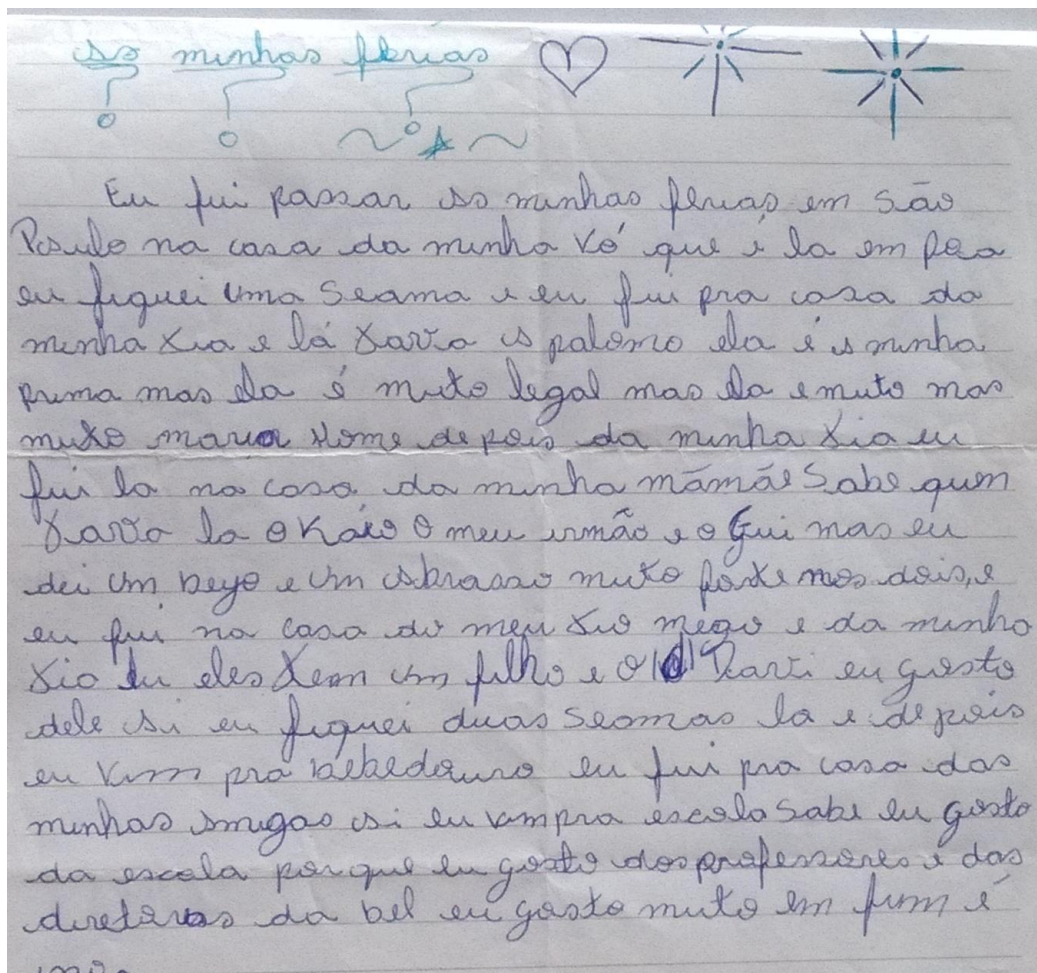 As minhas férias
Eu fui passar as minhas férias em São
Paulo na casa da minha vó que é la em
eu fiquei uma seama e eu fui pra casa da
minha tia e lá tava a paloma ela é a minha
prima mas ela é muto legal mas ela e muto mas
muto depois da minha tia eu
fui la na casa da minha mãmãe sabe quem
tava la o Kaio o meu irmão e o Gui mas eu
dei um beyo e um abrasso muto forte nos dois, e
eu fui na casa do meu tio e da minha
tia eles tem um filho e o Ravi eu gosto
dele ai eu fiquei duas seamas la e depois
eu vim pra bebedouro eu fui pra casa das
minhas amigas ai eu vim pra escola sabe eu gosto
da escola porque eu gosto dos professores e das
da bel eu gosto muto em fim é